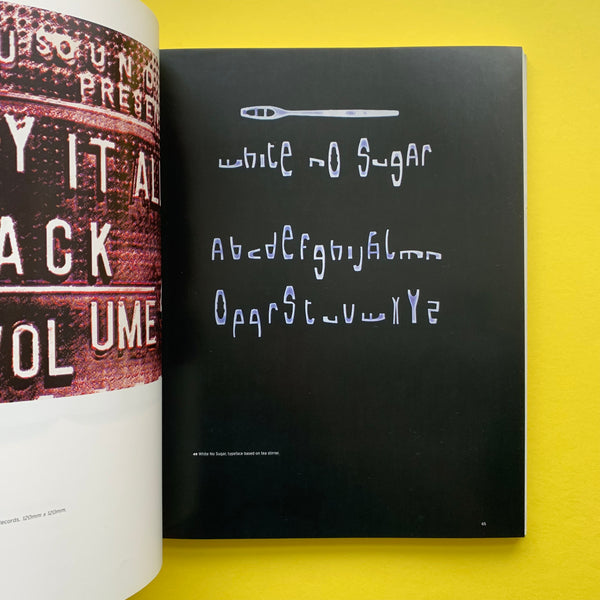 USOUND
PRESEN
Y IT AL
ACK
VOL UME
ecords, 120mm x 120mm.
white nO Sugar
Abcdefghijklmn
OpqrStuvwxYz
White No Sugar, typeface based on tea stirrer.
45